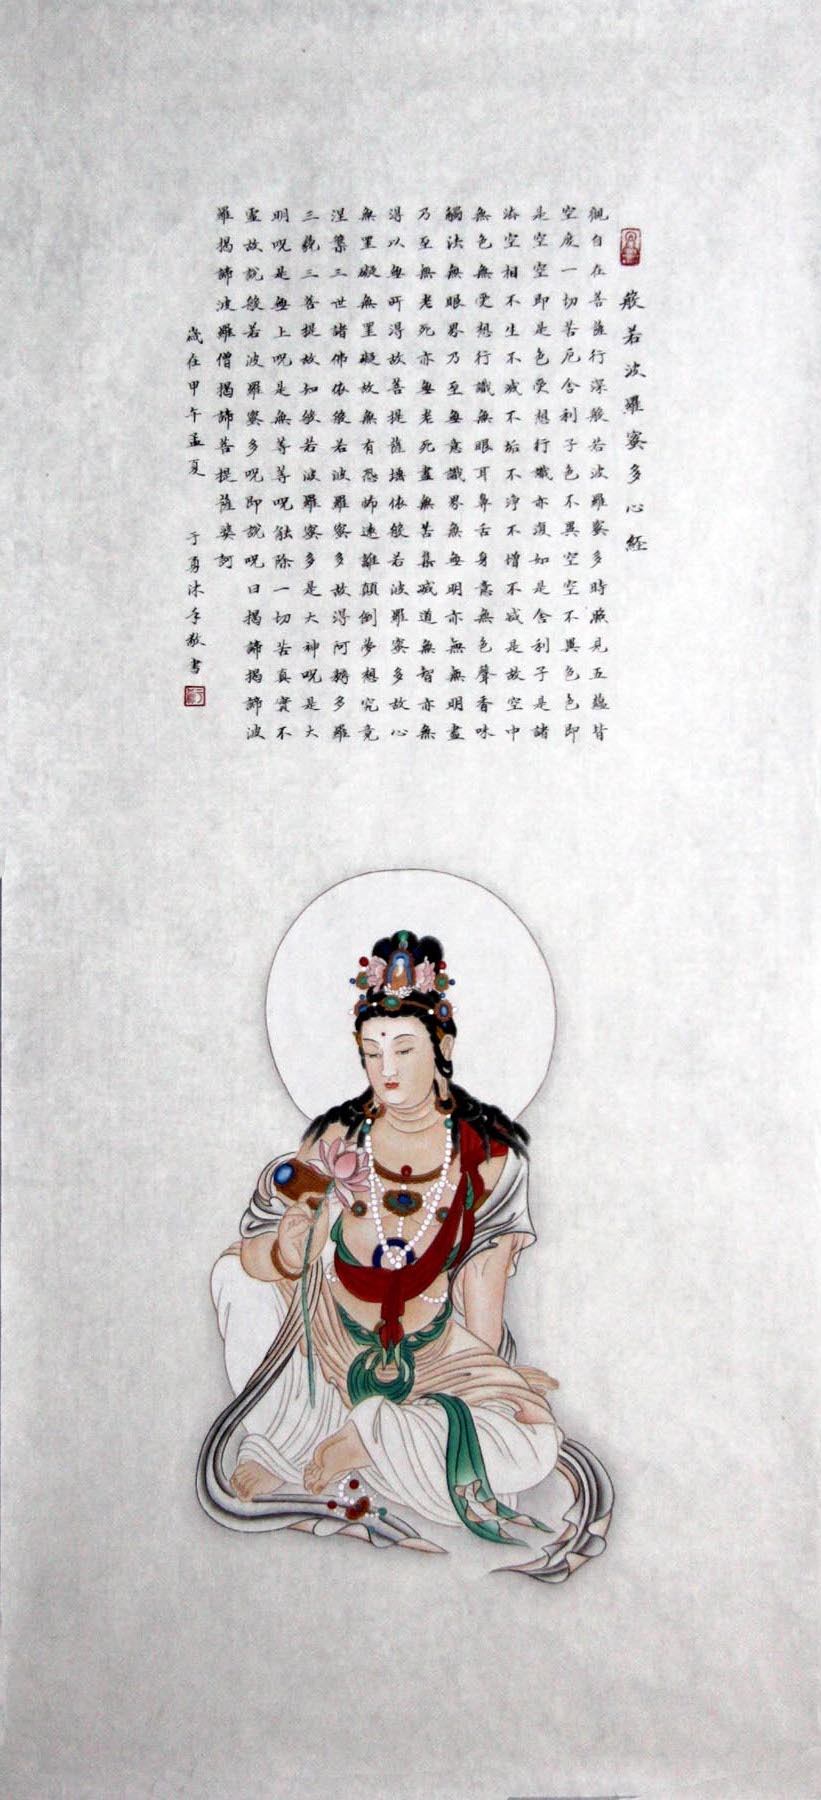 般若波羅蜜多心經
觀自在菩薩行深般若波羅蜜多時照見五蘊皆
空度一切苦厄舍利子色不異空空不異色色即
是空空即是色受想行識亦復如是舍利子是諸
法空相不生不滅不垢不淨不增不減是故空中
無色無受想行識無眼耳鼻舌身意無色聲香味
觸法無眼界乃至無意識界無無明亦無無明盡
乃至無老死亦無老死盡無苦集滅道無智亦無
得以無所得故菩提薩埵依般若波羅蜜多故心
無罣礙無罣礙故無有恐怖遠離顛倒夢想究竟
涅槃三世諸佛依般若波羅蜜多故得阿耨多羅
三藐三菩提故知般若波羅蜜多是大神呪是大
明呪是無上呪是無等等呪能除一切苦真實不
虛故說般若波羅蜜多呪即說呪曰揭諦揭諦波
羅揭諦波羅僧揭諦菩提薩婆訶
歲在甲午孟夏 于勇沐手敬書